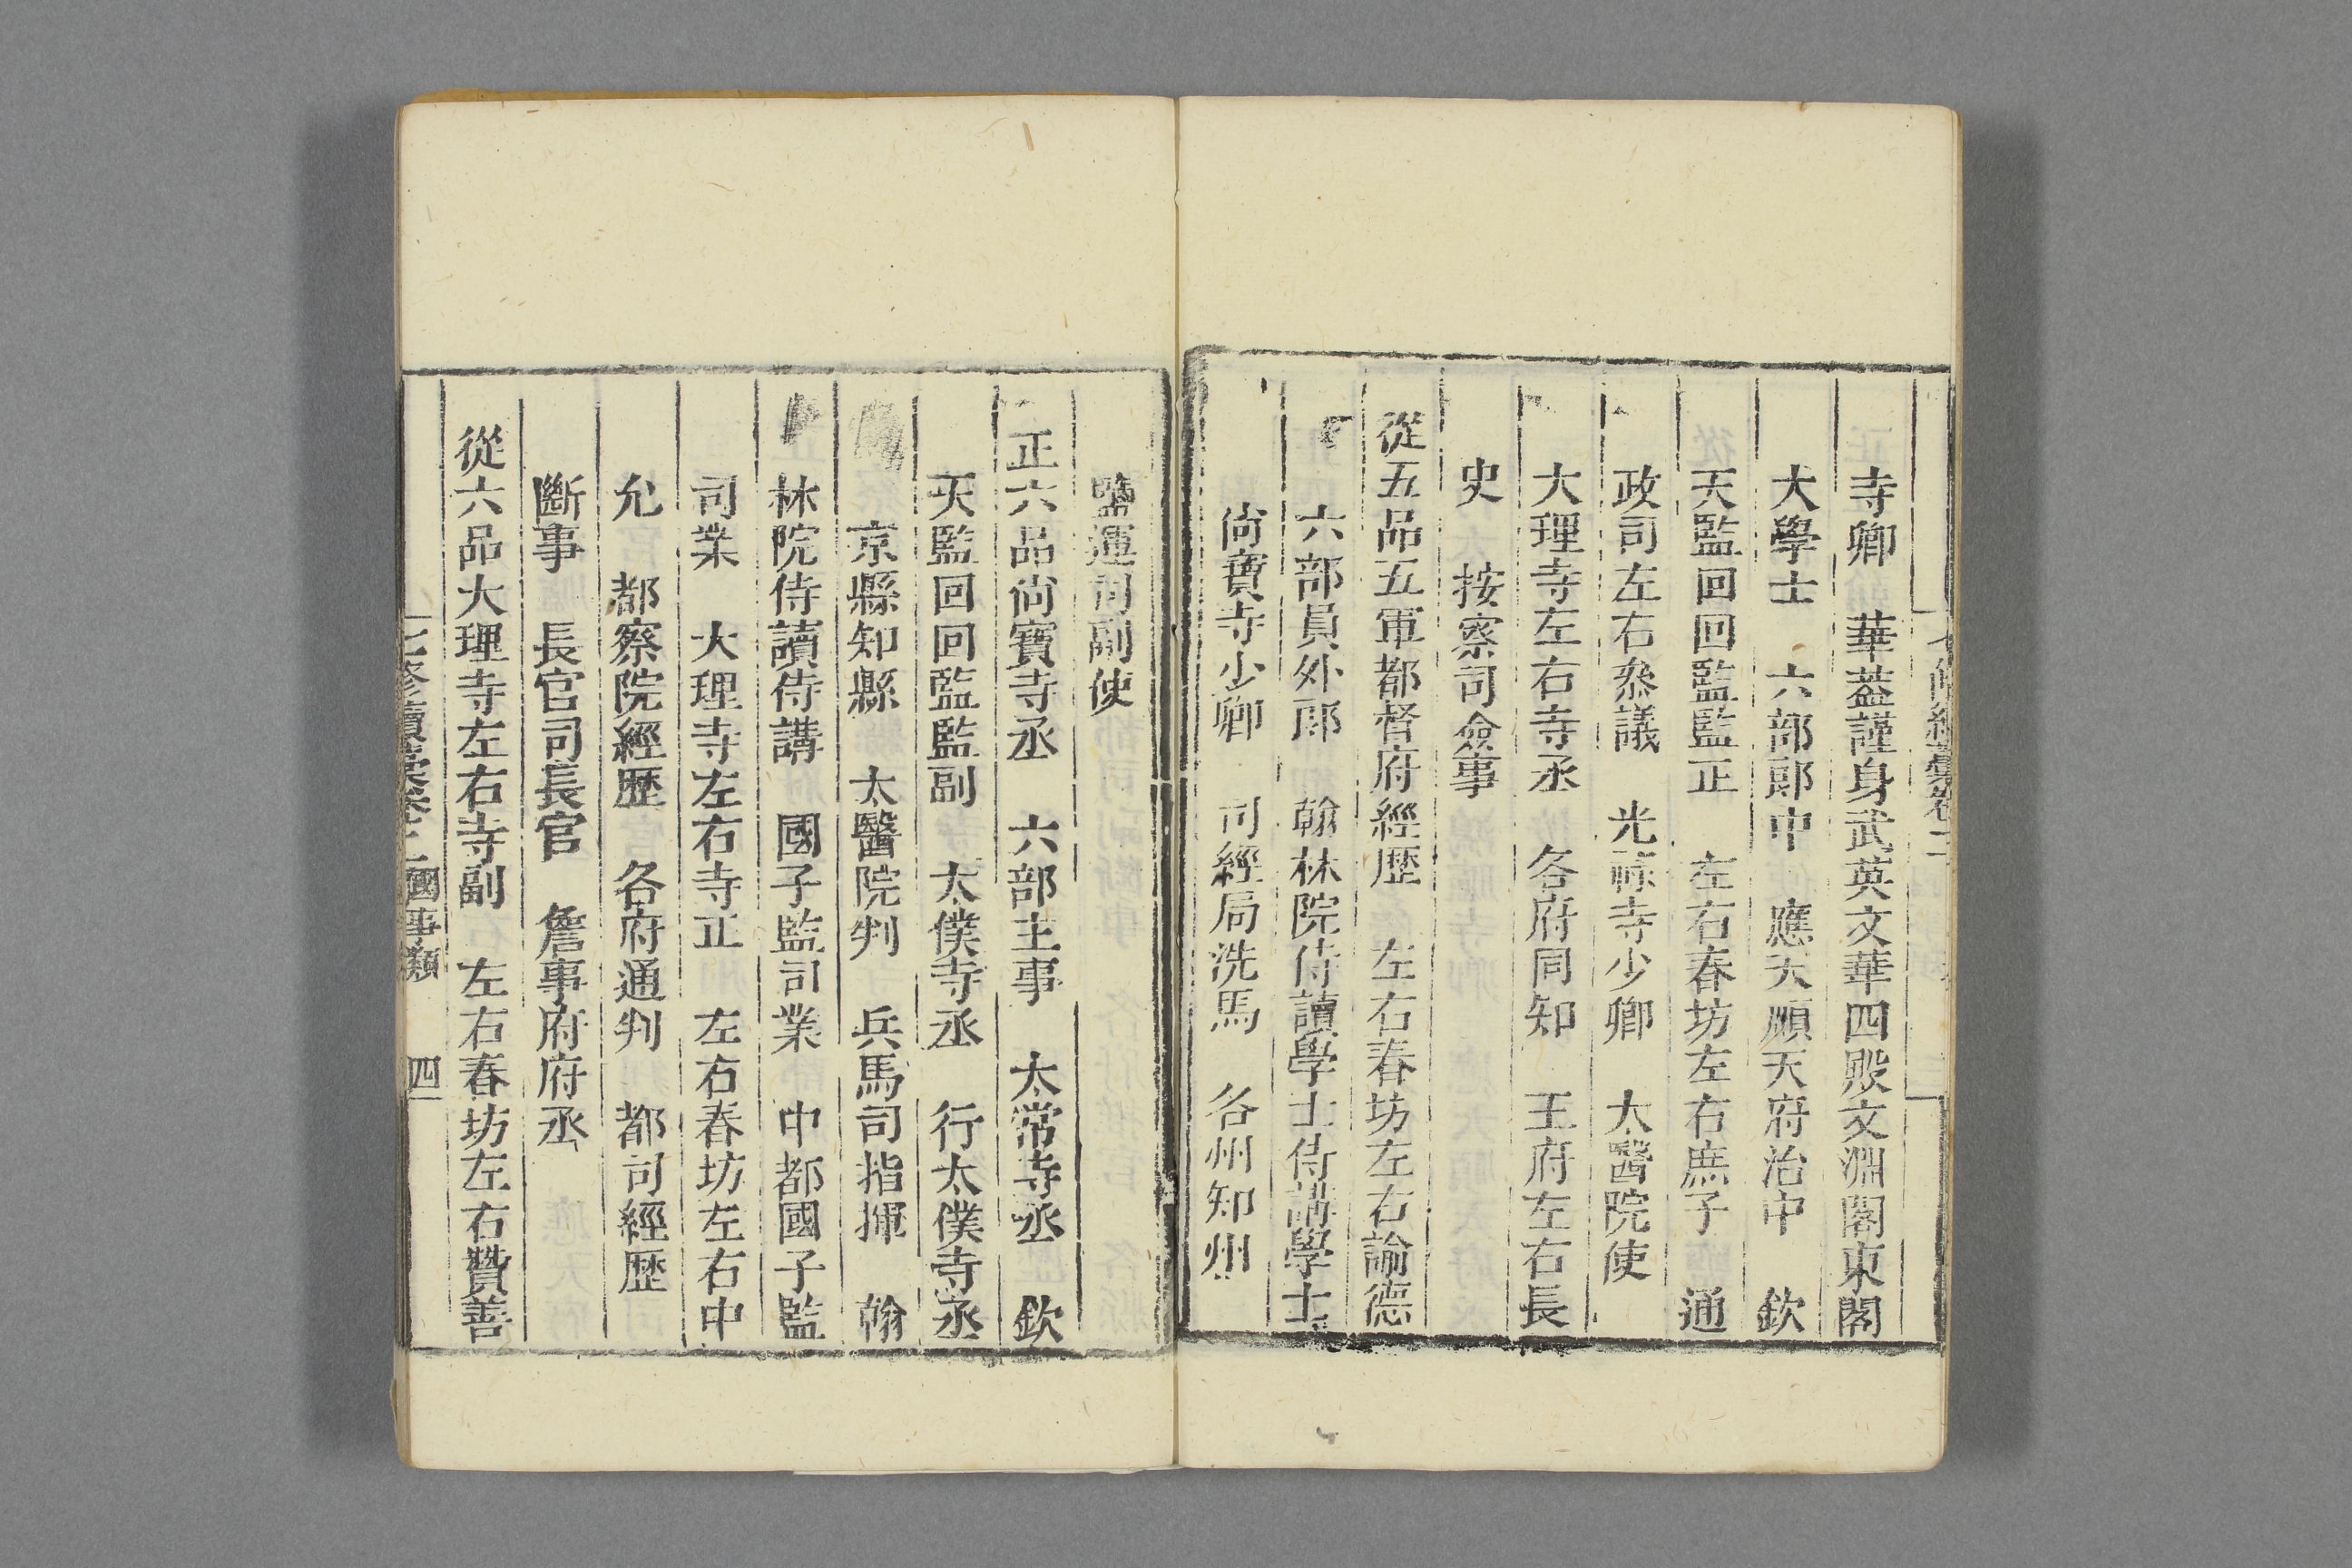 寺卿　華蓋謹身武英文華四殿文淵閣東閣
大學士　六部郎中　應天順天府治中　欽
天監回回監監正　左右春坊左右庶子　通
政司左右叅議　光祿寺少卿　太醫院使
大理寺左右寺丞　各府同知　王府左右長
史　按察司僉事
從五品五軍都督府經歷　左右春坊左右諭德
六部員外郎　翰林院侍讀學士侍講學士
尚寶寺少卿　司經局洗馬　各州知州
鹽運司副使
正六品尚寶寺丞　六部主事　太常寺丞　欽
天監回回監監副　太僕寺丞　行太僕寺丞
京縣知縣　太醫院判　兵馬司指揮　翰
林院侍讀侍講　國子監司業　中都國子監
司業　大理寺左右寺正　左右春坊左右中
允　都察院經歷　各府通判　都司經歷
斷事　長官司長官　詹事府府丞
從六品大理寺左右寺副　左右春坊左右贊善
七修續藁卷二　國事類　四